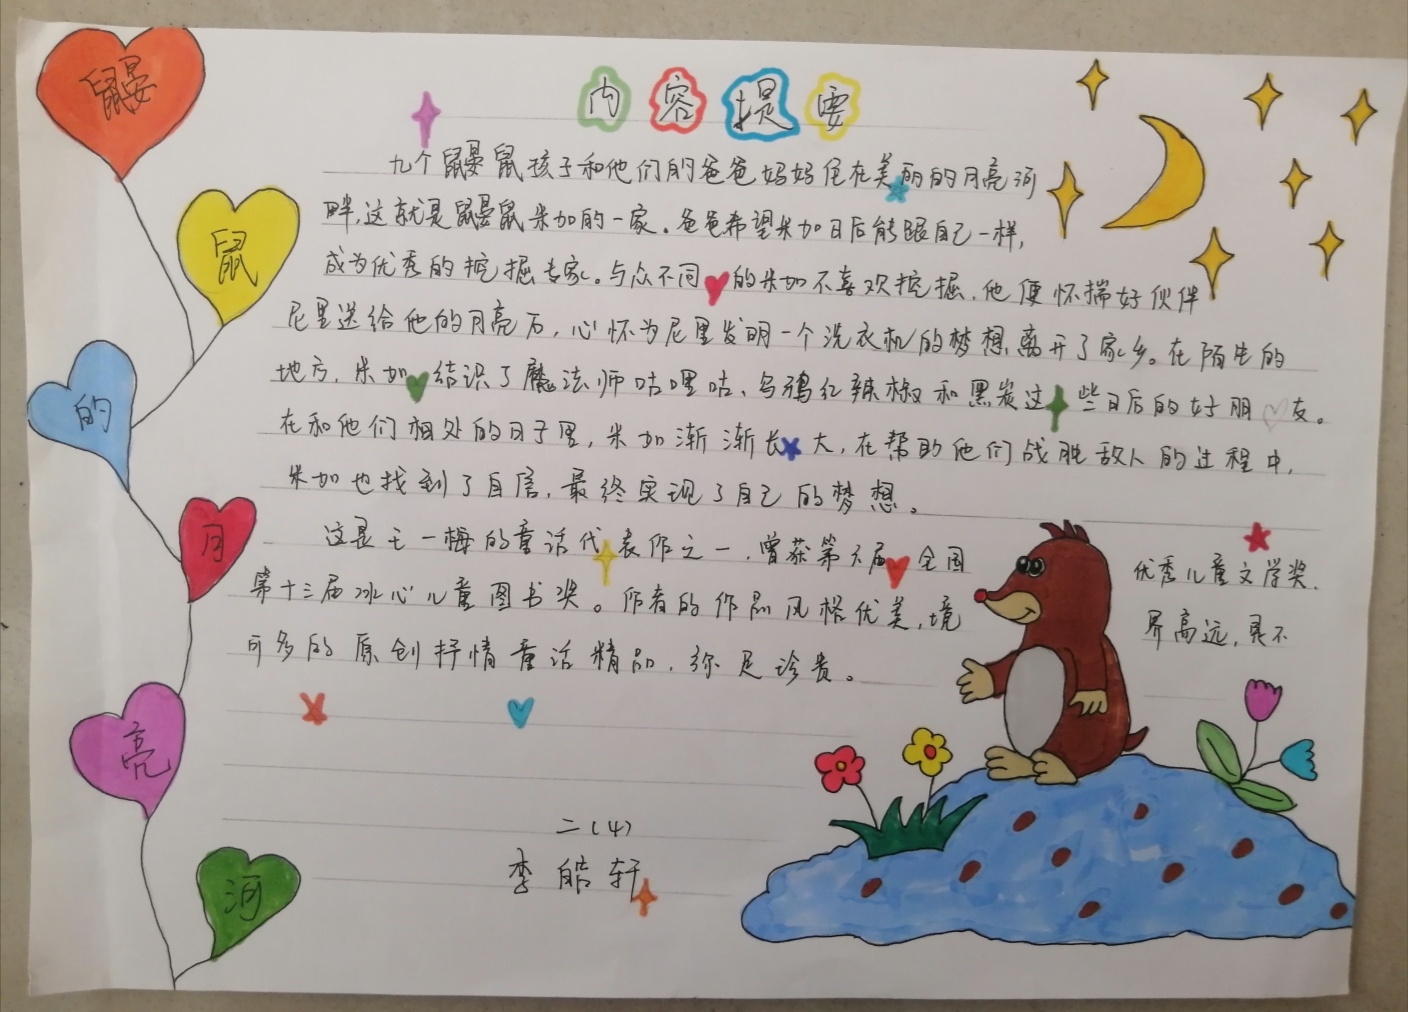 鼹
鼠
的
月
亮
河
内容提要
九个鼹鼠孩子和他们的爸爸妈妈住在美丽的月亮河
畔,这就是鼹鼠米加的一家。爸爸希望米加日后能跟自己一样,
成为优秀的挖掘专家。与众不同的米加不喜欢挖掘,他便怀揣好伙伴
尼里送给他的月亮石,心怀为尼里发明一个洗衣机的梦想离开了家乡。在陌生的
地方,米加结识了魔法师咕哩咕、乌鸦红辣椒和黑炭这些日后的好朋友。
在和他们相处的日子里,米加渐渐长大,在帮助他们战胜敌人的过程中,
米加也找到了自信,最终实现了自己的梦想。
这是王一梅的童话代表作之一,曾获第六届全国优秀儿童文学奖.
第十三届冰心儿童图书奖。作者的作品风格优美,境界高远,是不
可多的原创抒情童话精品,弥足珍贵。
二(4)
李皓轩